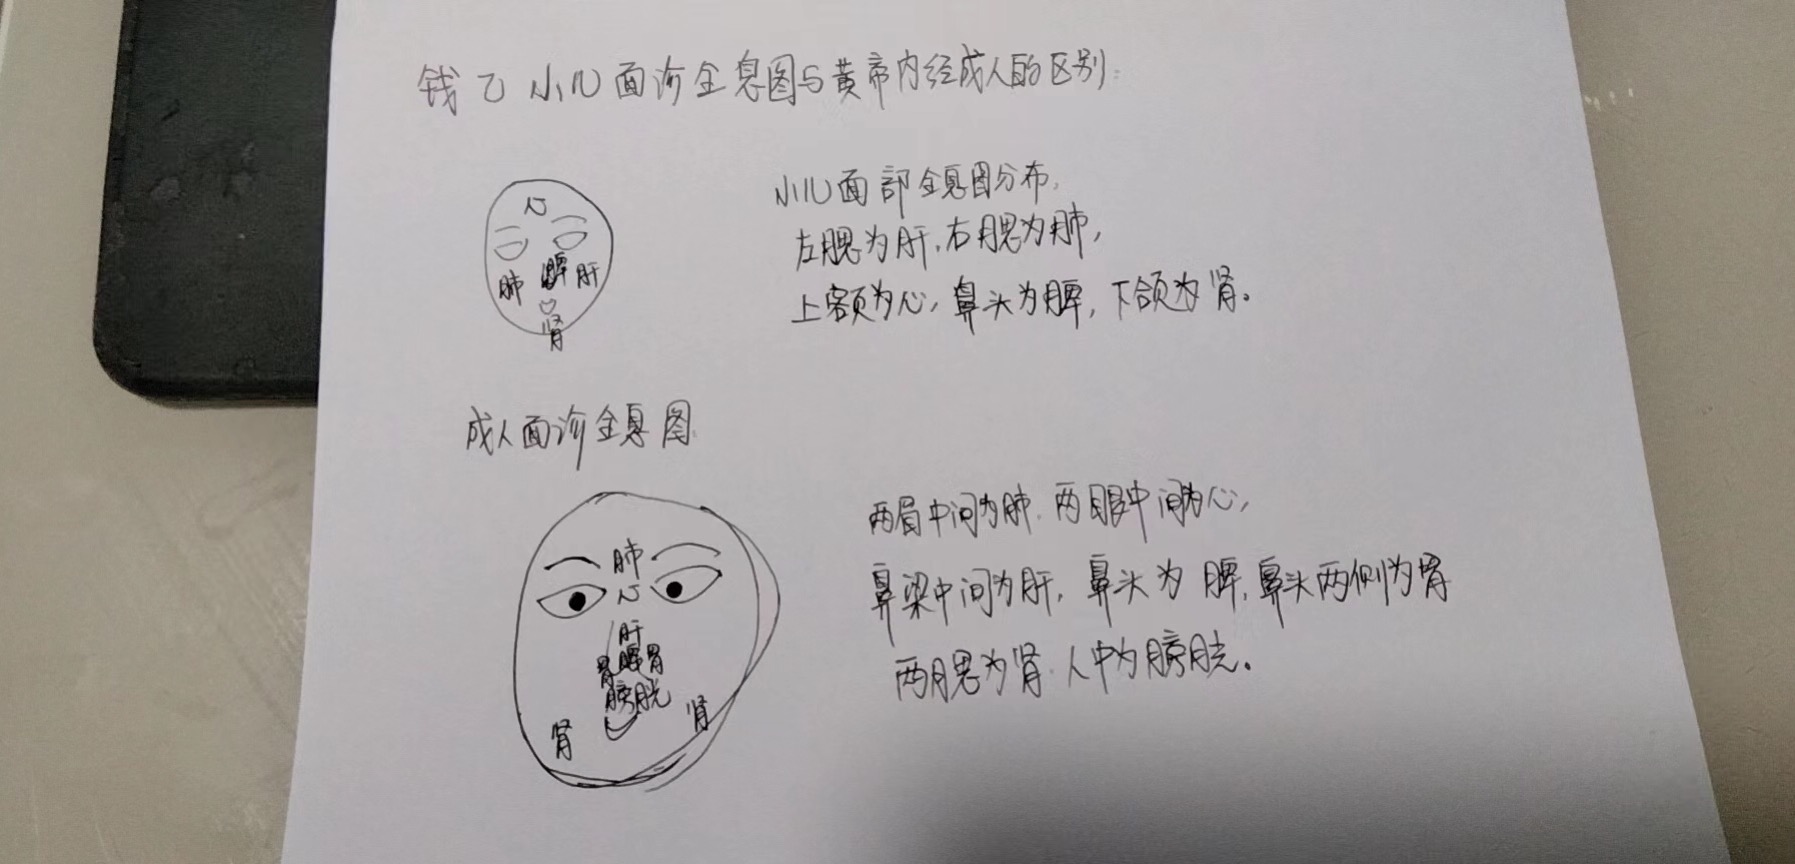 钱乙小儿面诊全息图与黄帝内经成人的区别:
心
肺 脾 肝
肾
小儿面部全息图分布,
左腮为肝,右腮为肺,
上额为心,鼻头为脾,下颌为肾。
成人面诊全息图
肺
心
肝
胃 脾 胃
膀胱
肾 肾
两眉中间为肺.两眼中间为心,
鼻梁中间为肝,鼻头为脾,鼻头两侧为胃
两腮为肾.人中为膀胱。